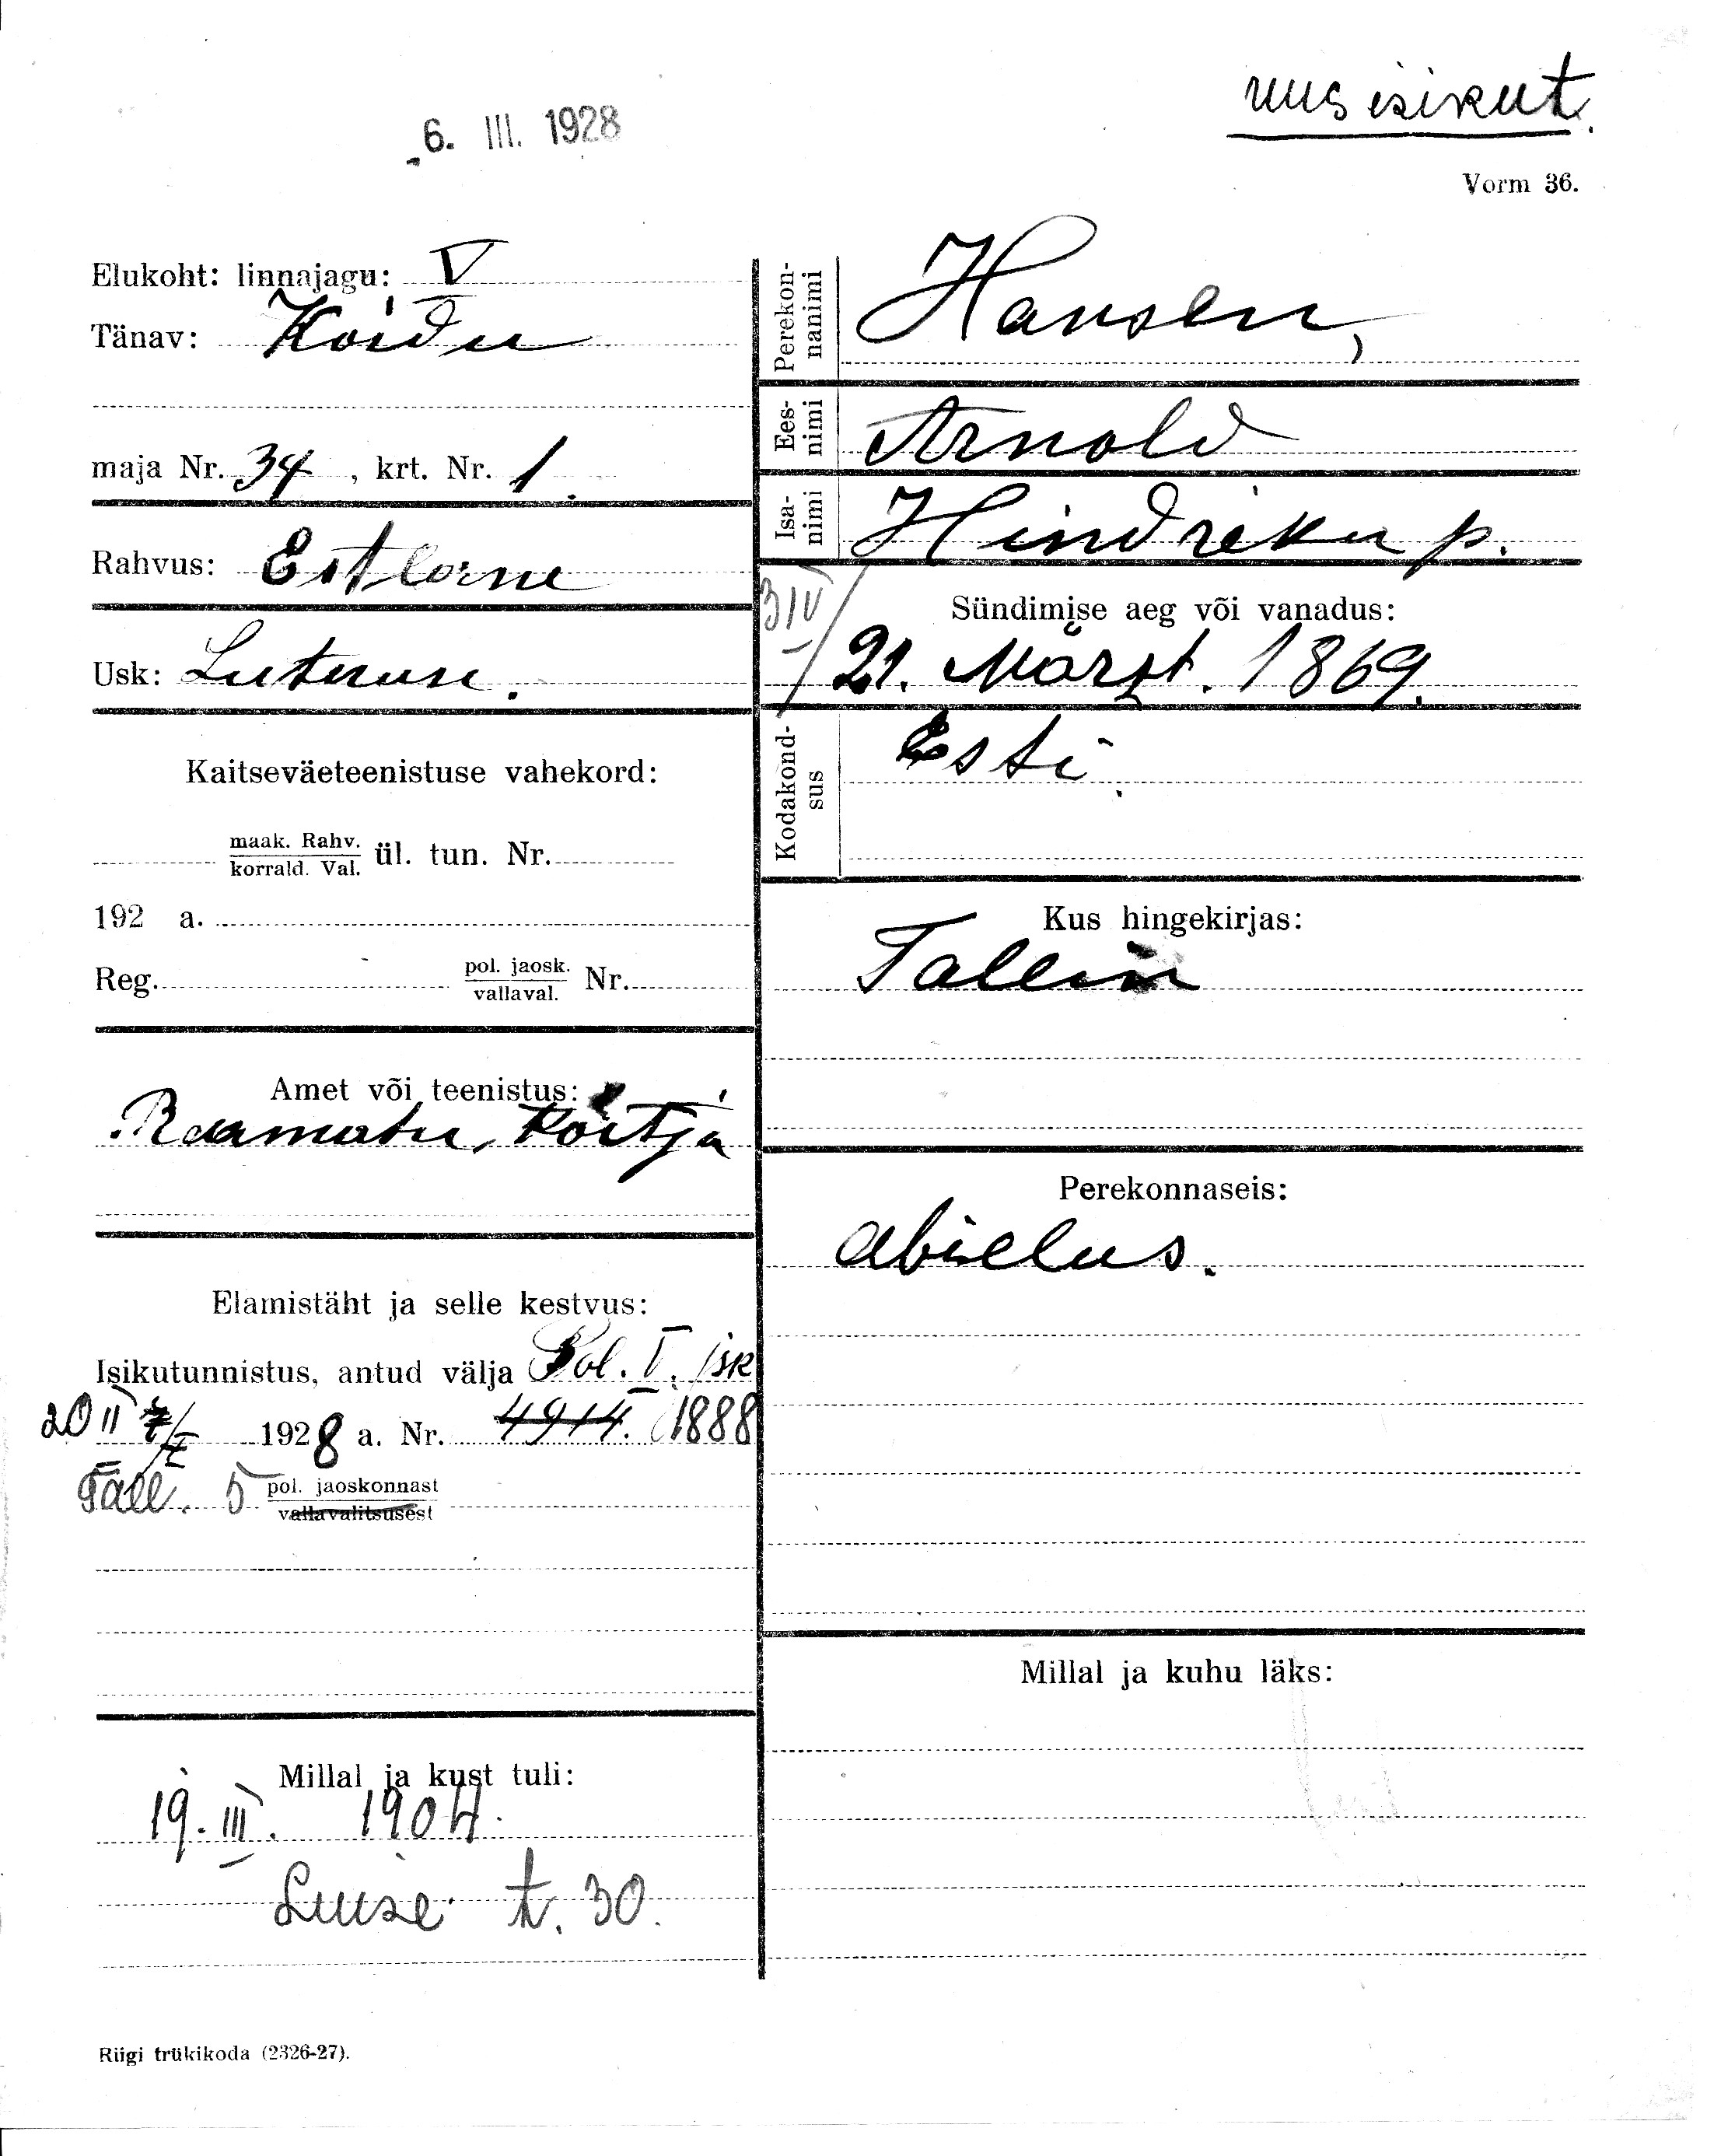 6. III. 1928
uus isikut.
Vorm 36.
Elukoht: linnajagu: V
Tänav: Koidu
maja Nr. 34, krt. Nr. 1.
Rahvus: Estlane
Usk: Luteruse.
Kaitseväeteenistuse vahekord:
maak. Rahv.
korrald. Val. ül. tun. Nr.
192 a.
Reg. pol. jaosk. Nr.
vallaval.
Amet või teenistus:
Raamatu köitja
Elamistäht ja selle kestvus:
Isikutunnistus, antud välja Pol. V. jsk
20 II 1928 a. Nr. 4914. 1888
Tall. 5 pol. jaoskonnast
vallavalitsusest
Millal ja kust tuli:
19. III. 1904.
Luise t. 30.
Riigi trükikoda (2326-27).
Perekon-
nanimi
Hansen,
Ees-
nimi
Arnold
Isa-
nimi
Hindreku p.
Sündimise aeg või vanadus:
21. Märts. 1869.
Kodakond-
sus
Esti.
Kus hingekirjas:
Tallin
Perekonnaseis:
abielus.
Millal ja kuhu läks: